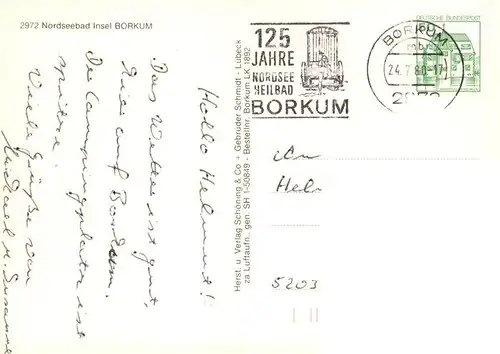 2972 Nordseebad Insel BORKUM
Hallo Helmut!
Das Wetter ist gut,
hier auf Borkum.
Der Campingplatz ist
spitze.
Viele Grüße von
Michael u. Susanne
Herst. u. Verlag Schöning & Co + Gebrüder Schmidt · Lübeck
za Luftaufn., gen. SH 1-50849 - Bestellnr. Borkum LK 1892
125
JAHRE
NORDSEE
HEILBAD
BORKUM
BORKUM
24.7.80-17
2972
DEUTSCHE BUNDESPOST
Hel
5203